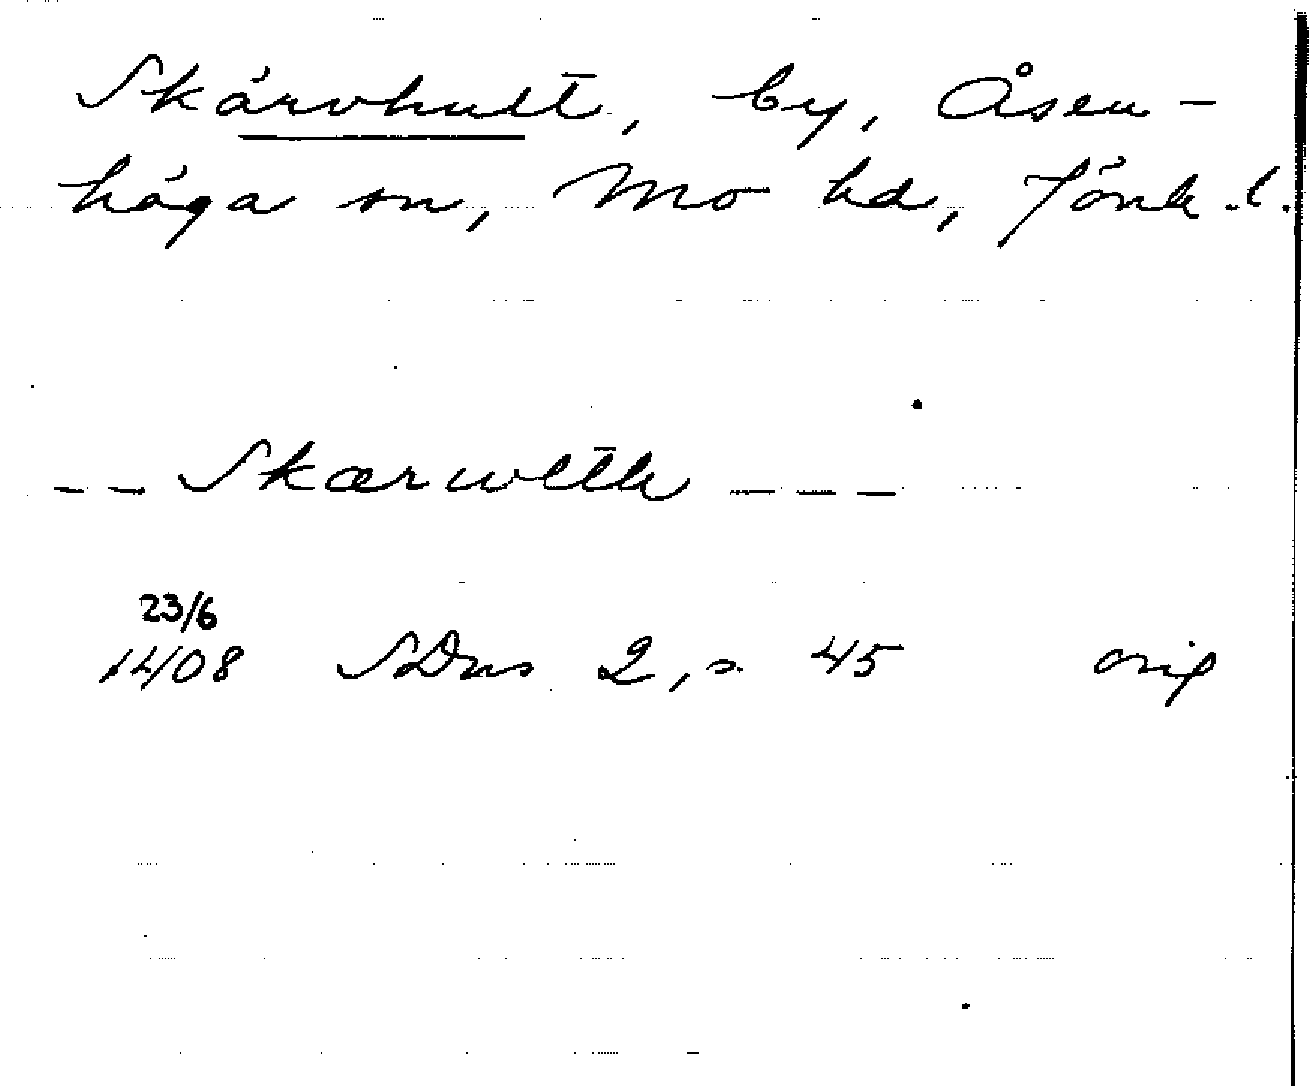 Skärvhult, by, Åsen-
höga sn, Mo hd, Jönk.l.
-- Skærwlth ---
23/6
1408 SDns 2, s. 45 orig